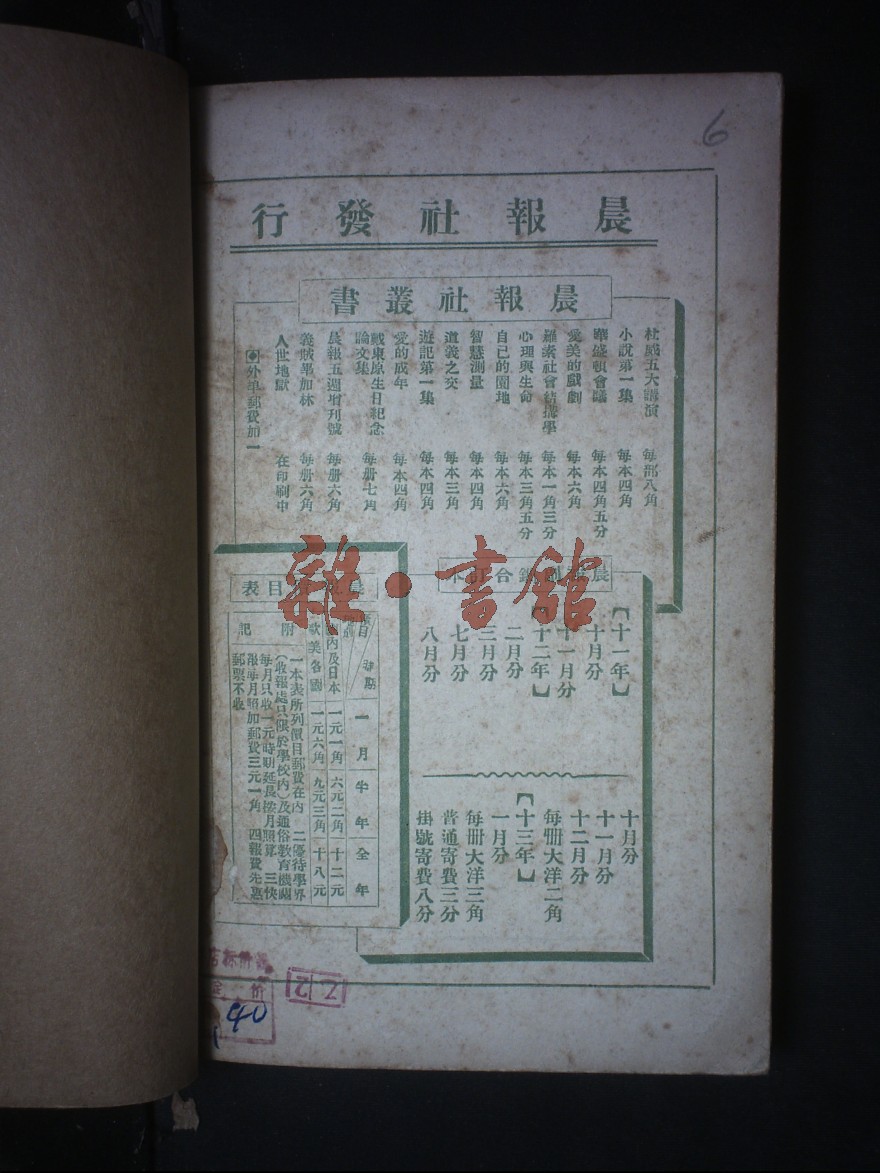 6
晨報社發行
晨報社叢書
杜威五大講演 每部八角
小說第一集 每本四角
華盛頓會議 每本四角五分
愛美的戲劇 每本六角
羅素社會結構學 每本一角三分
心理與生命 每本三角五分
自己的園地 每本六角
智慧測量 每本四角
道義之交 每本三角
遊記第一集 每本四角
愛的成年 每本四角
戴東原生日紀念論文集 每册七角
晨報五週增刊號 每册六角
義賊畢加林 每册六角
人世地獄 在印刷中
外埠郵費加一
晨報副鐫合訂本
【十一年】
十月分
十一月分
【十二年】
二月分
三月分
七月分
八月分
十月分
十一月分
十二月分
每冊大洋二角
【十三年】
一月分
每冊大洋三角
普通寄費三分
掛號寄費八分
目表
時期 一月 半年 全年
國內及日本 一元一角 六元二角 十二元
歐美各國 一元六角 九元三角 十八元
附記
一本表所列價目郵費在內 二優待學界
(收報處只限於學校內)及通俗教育機關
每月只收一元時期延長按月照算 三快
報每月照加郵費三元一角 四報費先惠
郵票不收
雜·書館
价
40